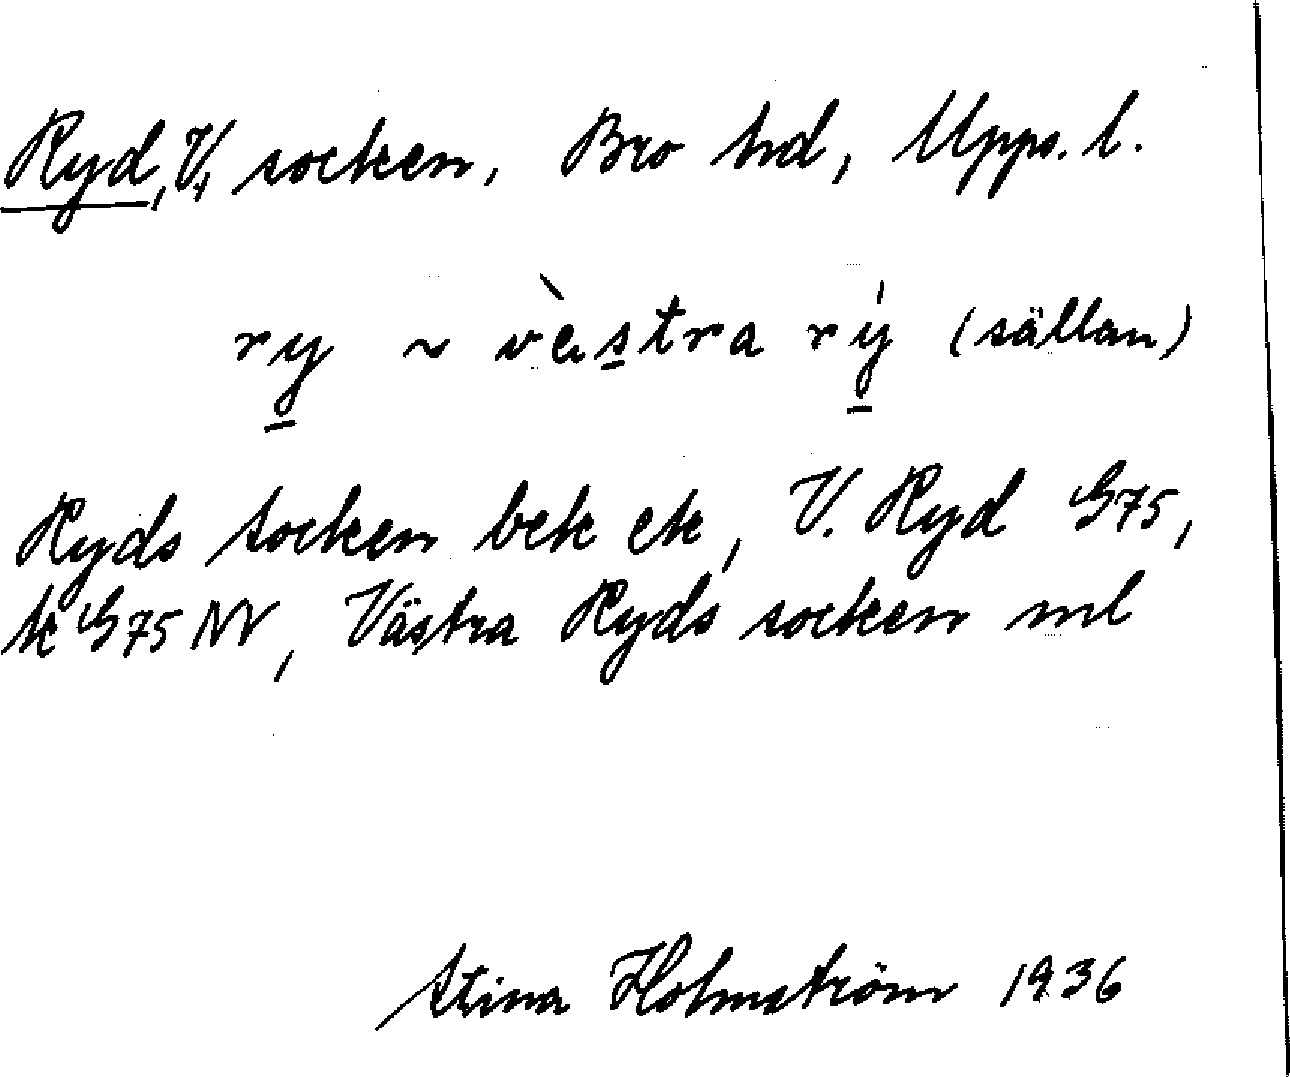 Ryd, V. socken, Bro hd, Upps. l.
ry ~ vèstra rý (sällan)
Ryds socken bek ek, V. Ryd G75,
k G75 NV, Västra Ryds socken ml
Stina Holmström 1936